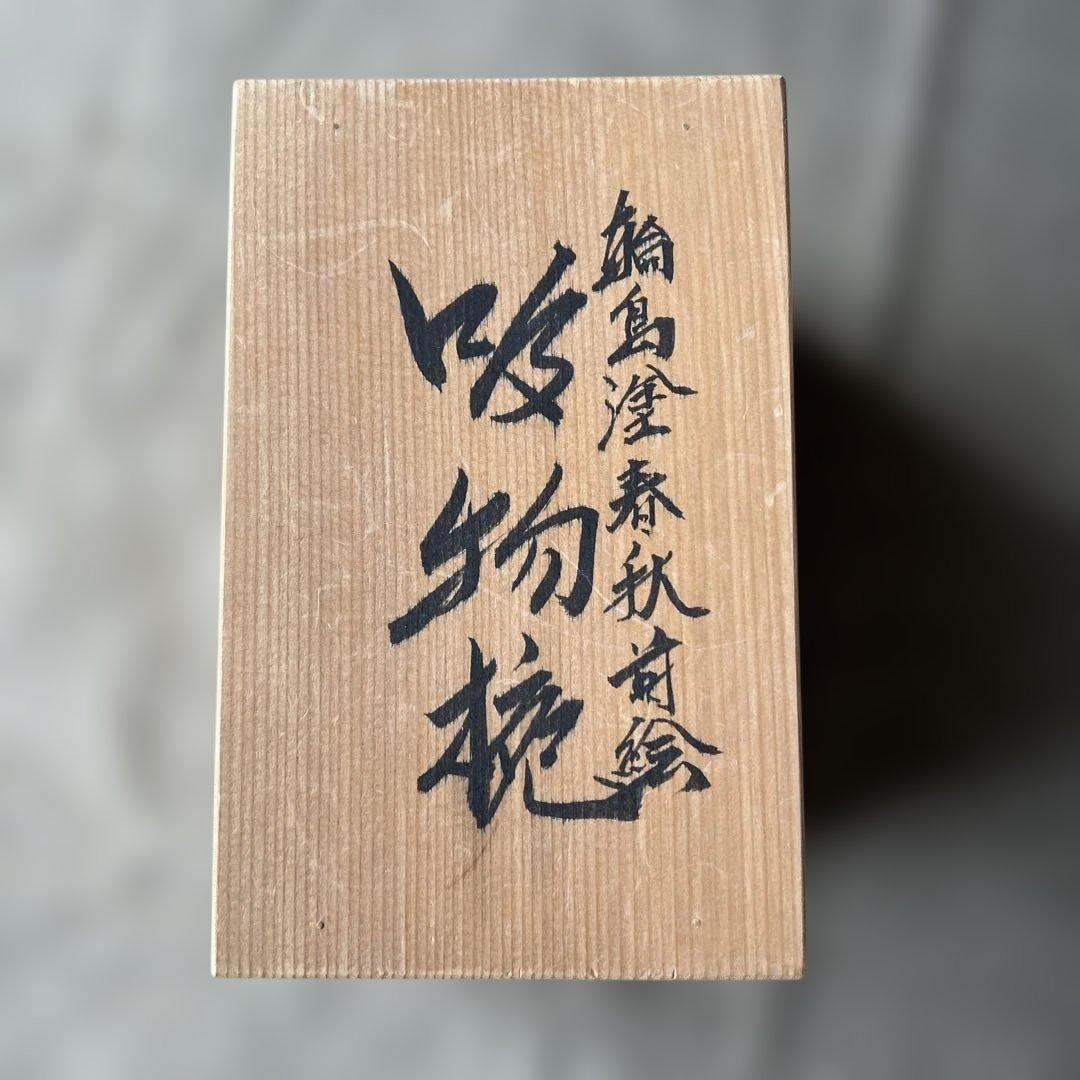 輪島塗春秋蒔絵
吸物椀